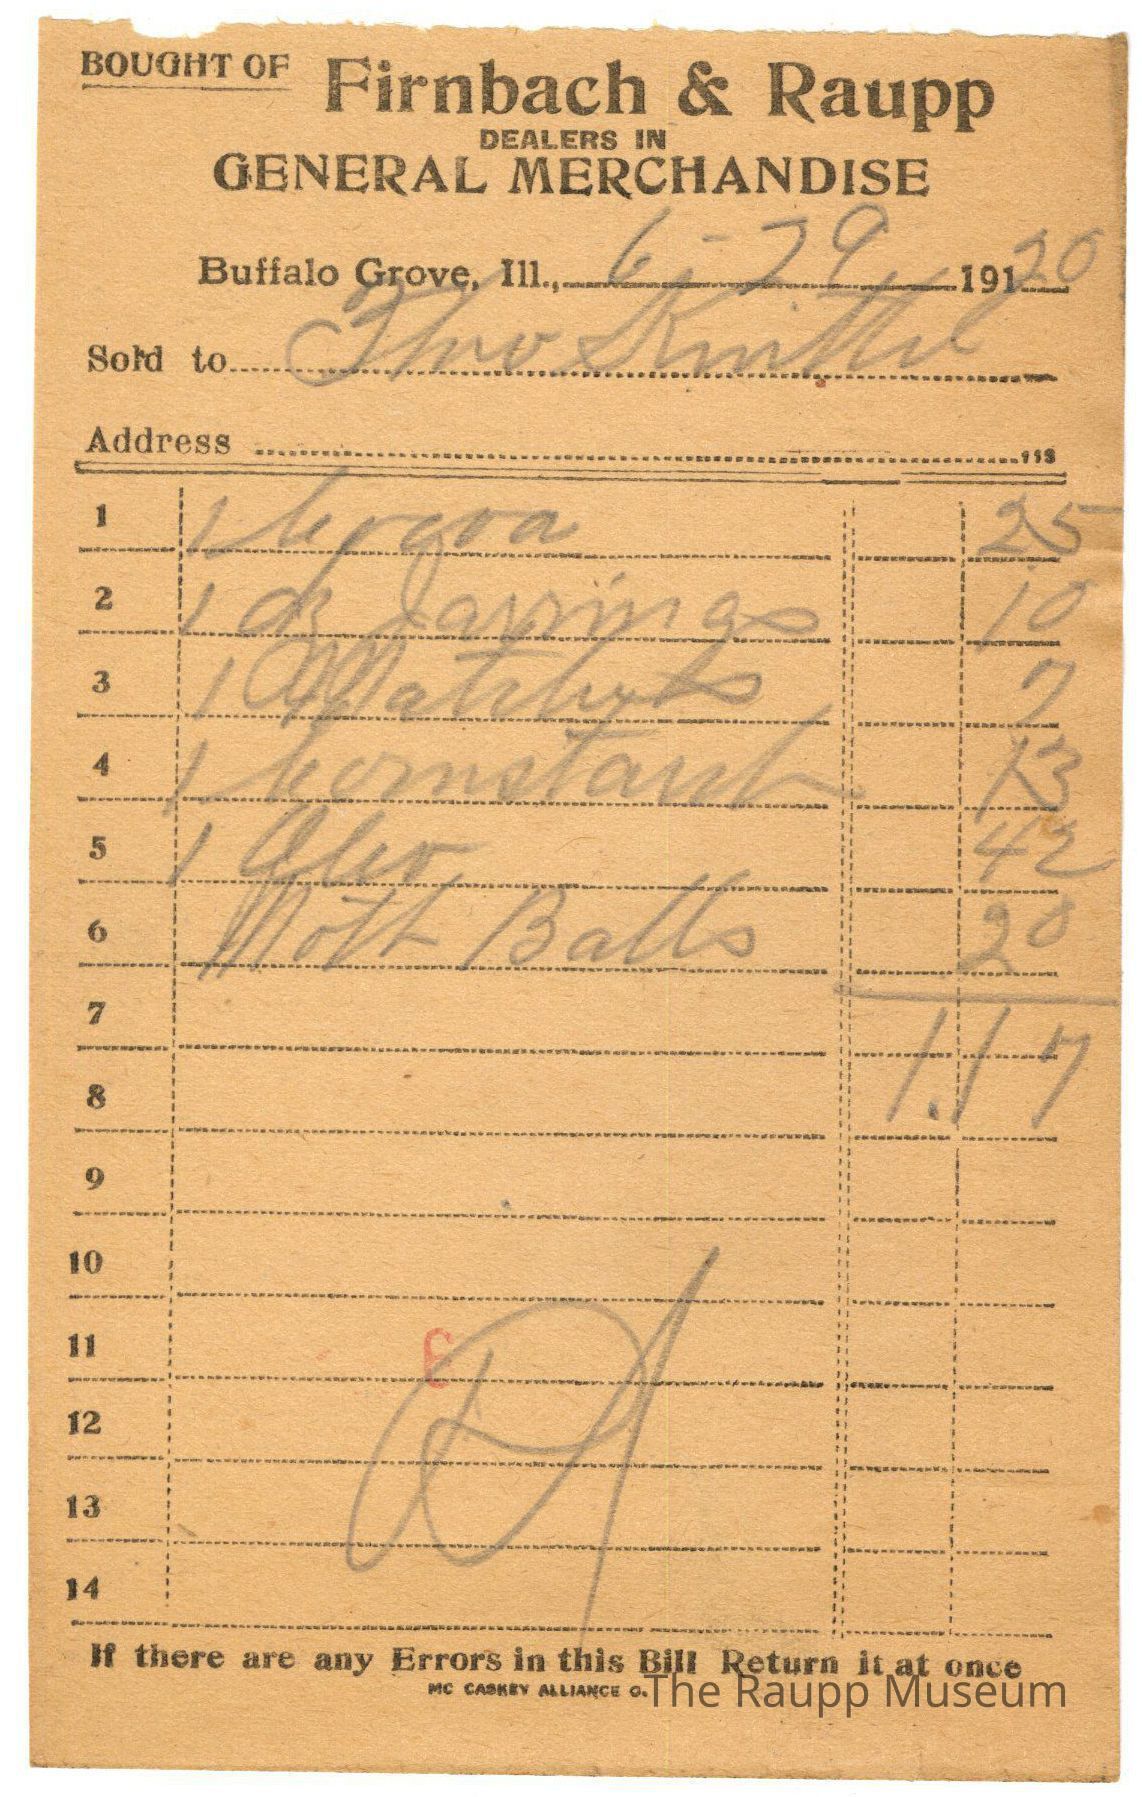 BOUGHT OF Firnbach & Raupp
DEALERS IN
GENERAL MERCHANDISE
Buffalo Grove, Ill., 6-29 191 20
Sold to
Address 113
1 1 Cocoa 25
2 1 dz Jar rings 10
3 1 Matches 7
4 1 Cornstarch 13
5 1 42
6 Moth Balls 20
7
1.17
8
9
10
11
12
13
14
If there are any Errors in this Bill Return it at once
MC CASKEY ALLIANCE O.
The Raupp Museum